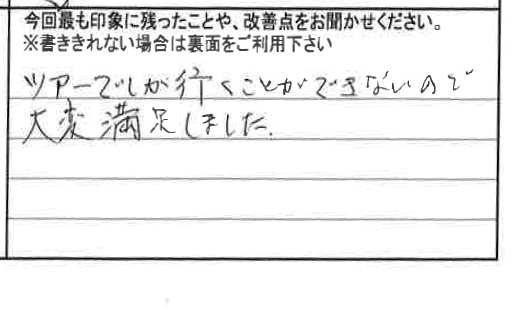 今回最も印象に残ったことや、改善点をお聞かせください。
※書ききれない場合は裏面をご利用下さい
ツアーでしが行くことができないので
大変満足しました。